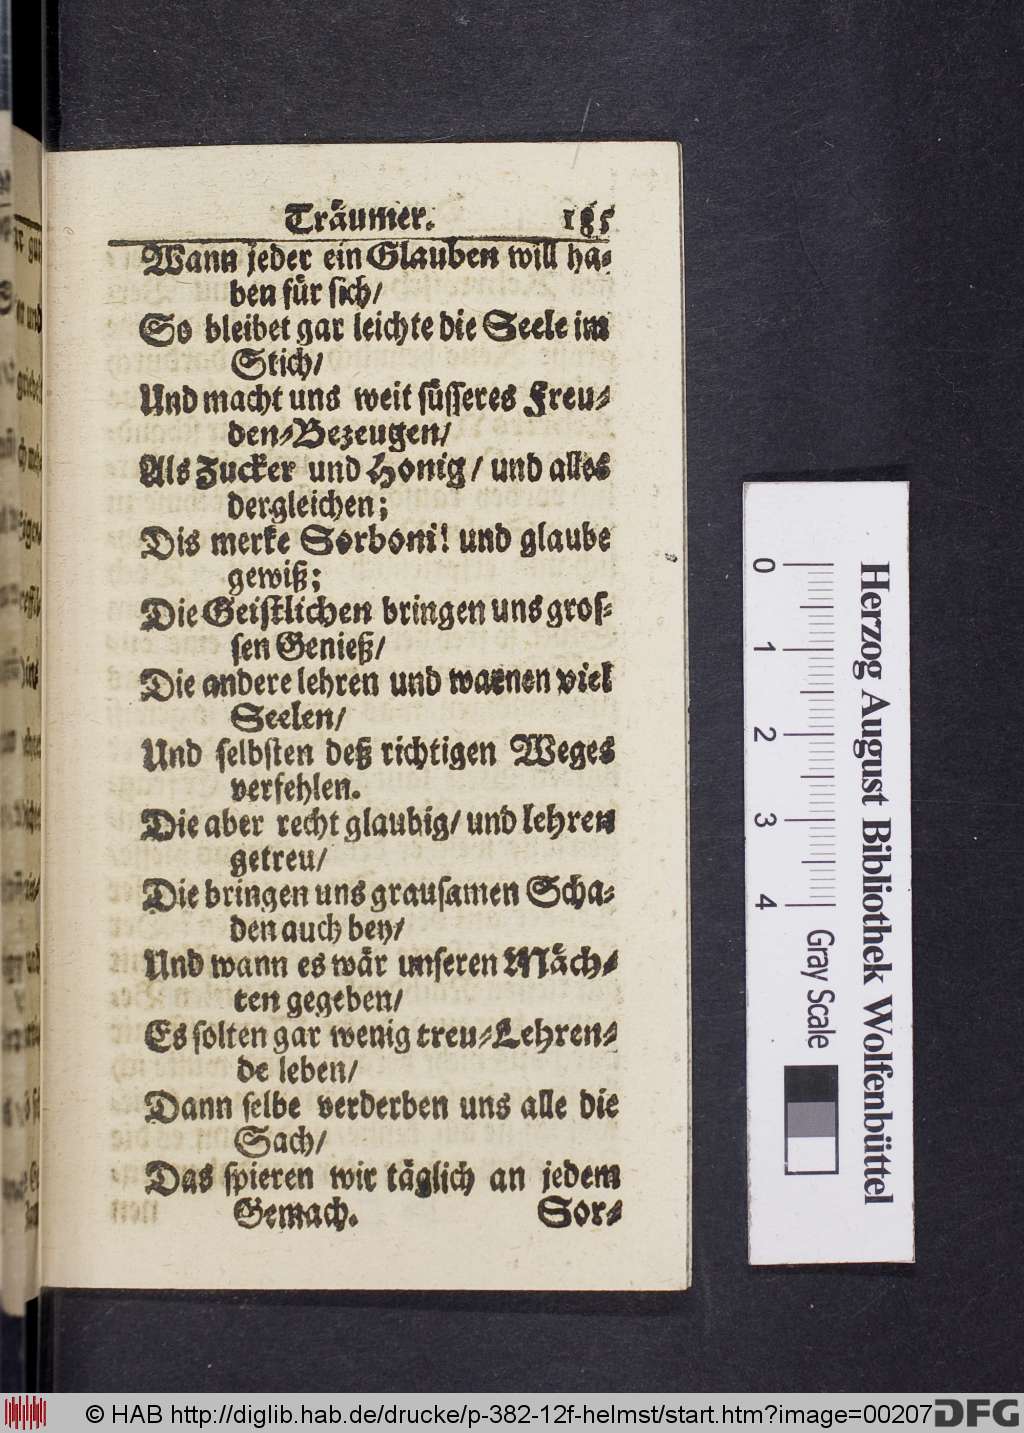 Träumer. 185
Wann jeder ein Glauben will ha-
ben für sich/
So bleibet gar leichte die Seele im
Stich/
Und macht uns weit süsseres Freu-
den-Bezeugen/
Als Zucker und Honig/ und alles
dergleichen;
Dis merke Sorboni! und glaube
gewiß;
Die Geistlichen bringen uns gros-
sen Genieß/
Die andere lehren und warnen viel
Seelen/
Und selbsten deß richtigen Weges
verfehlen.
Die aber recht glaubig/ und lehren
getreu/
Die bringen uns grausamen Scha-
den auch bey/
Und wann es wär unseren Mäch-
ten gegeben/
Es solten gar wenig treu-Lehren-
de leben/
Dann selbe verderben uns alle die
Sach/
Das spieren wir täglich an jedem
Gemach. Sor-
0 1 2 3 4 Gray Scale
Herzog August Bibliothek Wolfenbüttel
© HAB http://diglib.hab.de/drucke/p-382-12f-helmst/start.htm?image=00207
DFG